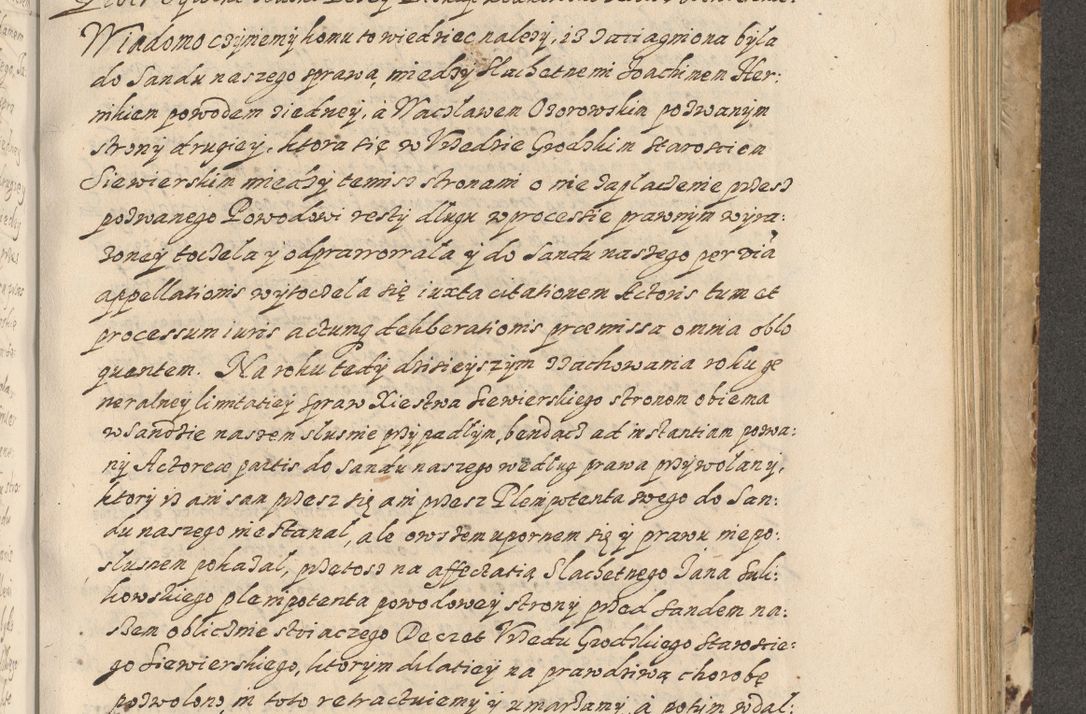 Wiadomo czyniemy komu to wiedziec nalezy, iz zaciagniona była
do Sandu naszego sprawa, miedzy Slachetnemi Joachinem Her-
nikiem powodem ziedney, à Wacslawem Ozorowskim pozwanym
strony drugiey, ktora się w Vrzedzie Grodzkim Starostien
Siewierskim miedzy temisz stronami o nie zaplaczenie przesz
pozwanego Powodowi resty dlugu w processie prawnym wyra-
zoney toczela y odprawowala y do Sandu naszego per via
appellationis wytoczela się iuxta citationem Actoris tum et
processum iuris actumq deliberationis præmissa omnia oblo
quentem. Na roku tedy dzisieyszym zachowania roku ge
neralney limitatiey spraw Xiestwa Siewierskiego stronom obiema
w Sandzie naszem slusnie przypadlym, bendacz ad instantiam pozwa-
ny Actoreæ partis do Sandu naszego według prawa przywolany,
ktory iz ani sam przesz się ani przesz Plenipotenta swego do San-
du naszego nie stanal, ale owszem upornem się y prawu niepo-
slusznem pokazal, przetosz na affectatią Slachetnego Jana Suli-
kowskiego plenipotenta powodowey strony przed Sandem na-
szem oblicznie stoiaczego Decret Vrzedu Grodzkiego Starostie-
go Siewierskiego, ktorym dilatiey na prawdziwą chorobę
pozwolono in toto retractuiemy y umarzamy, à potym wdal-